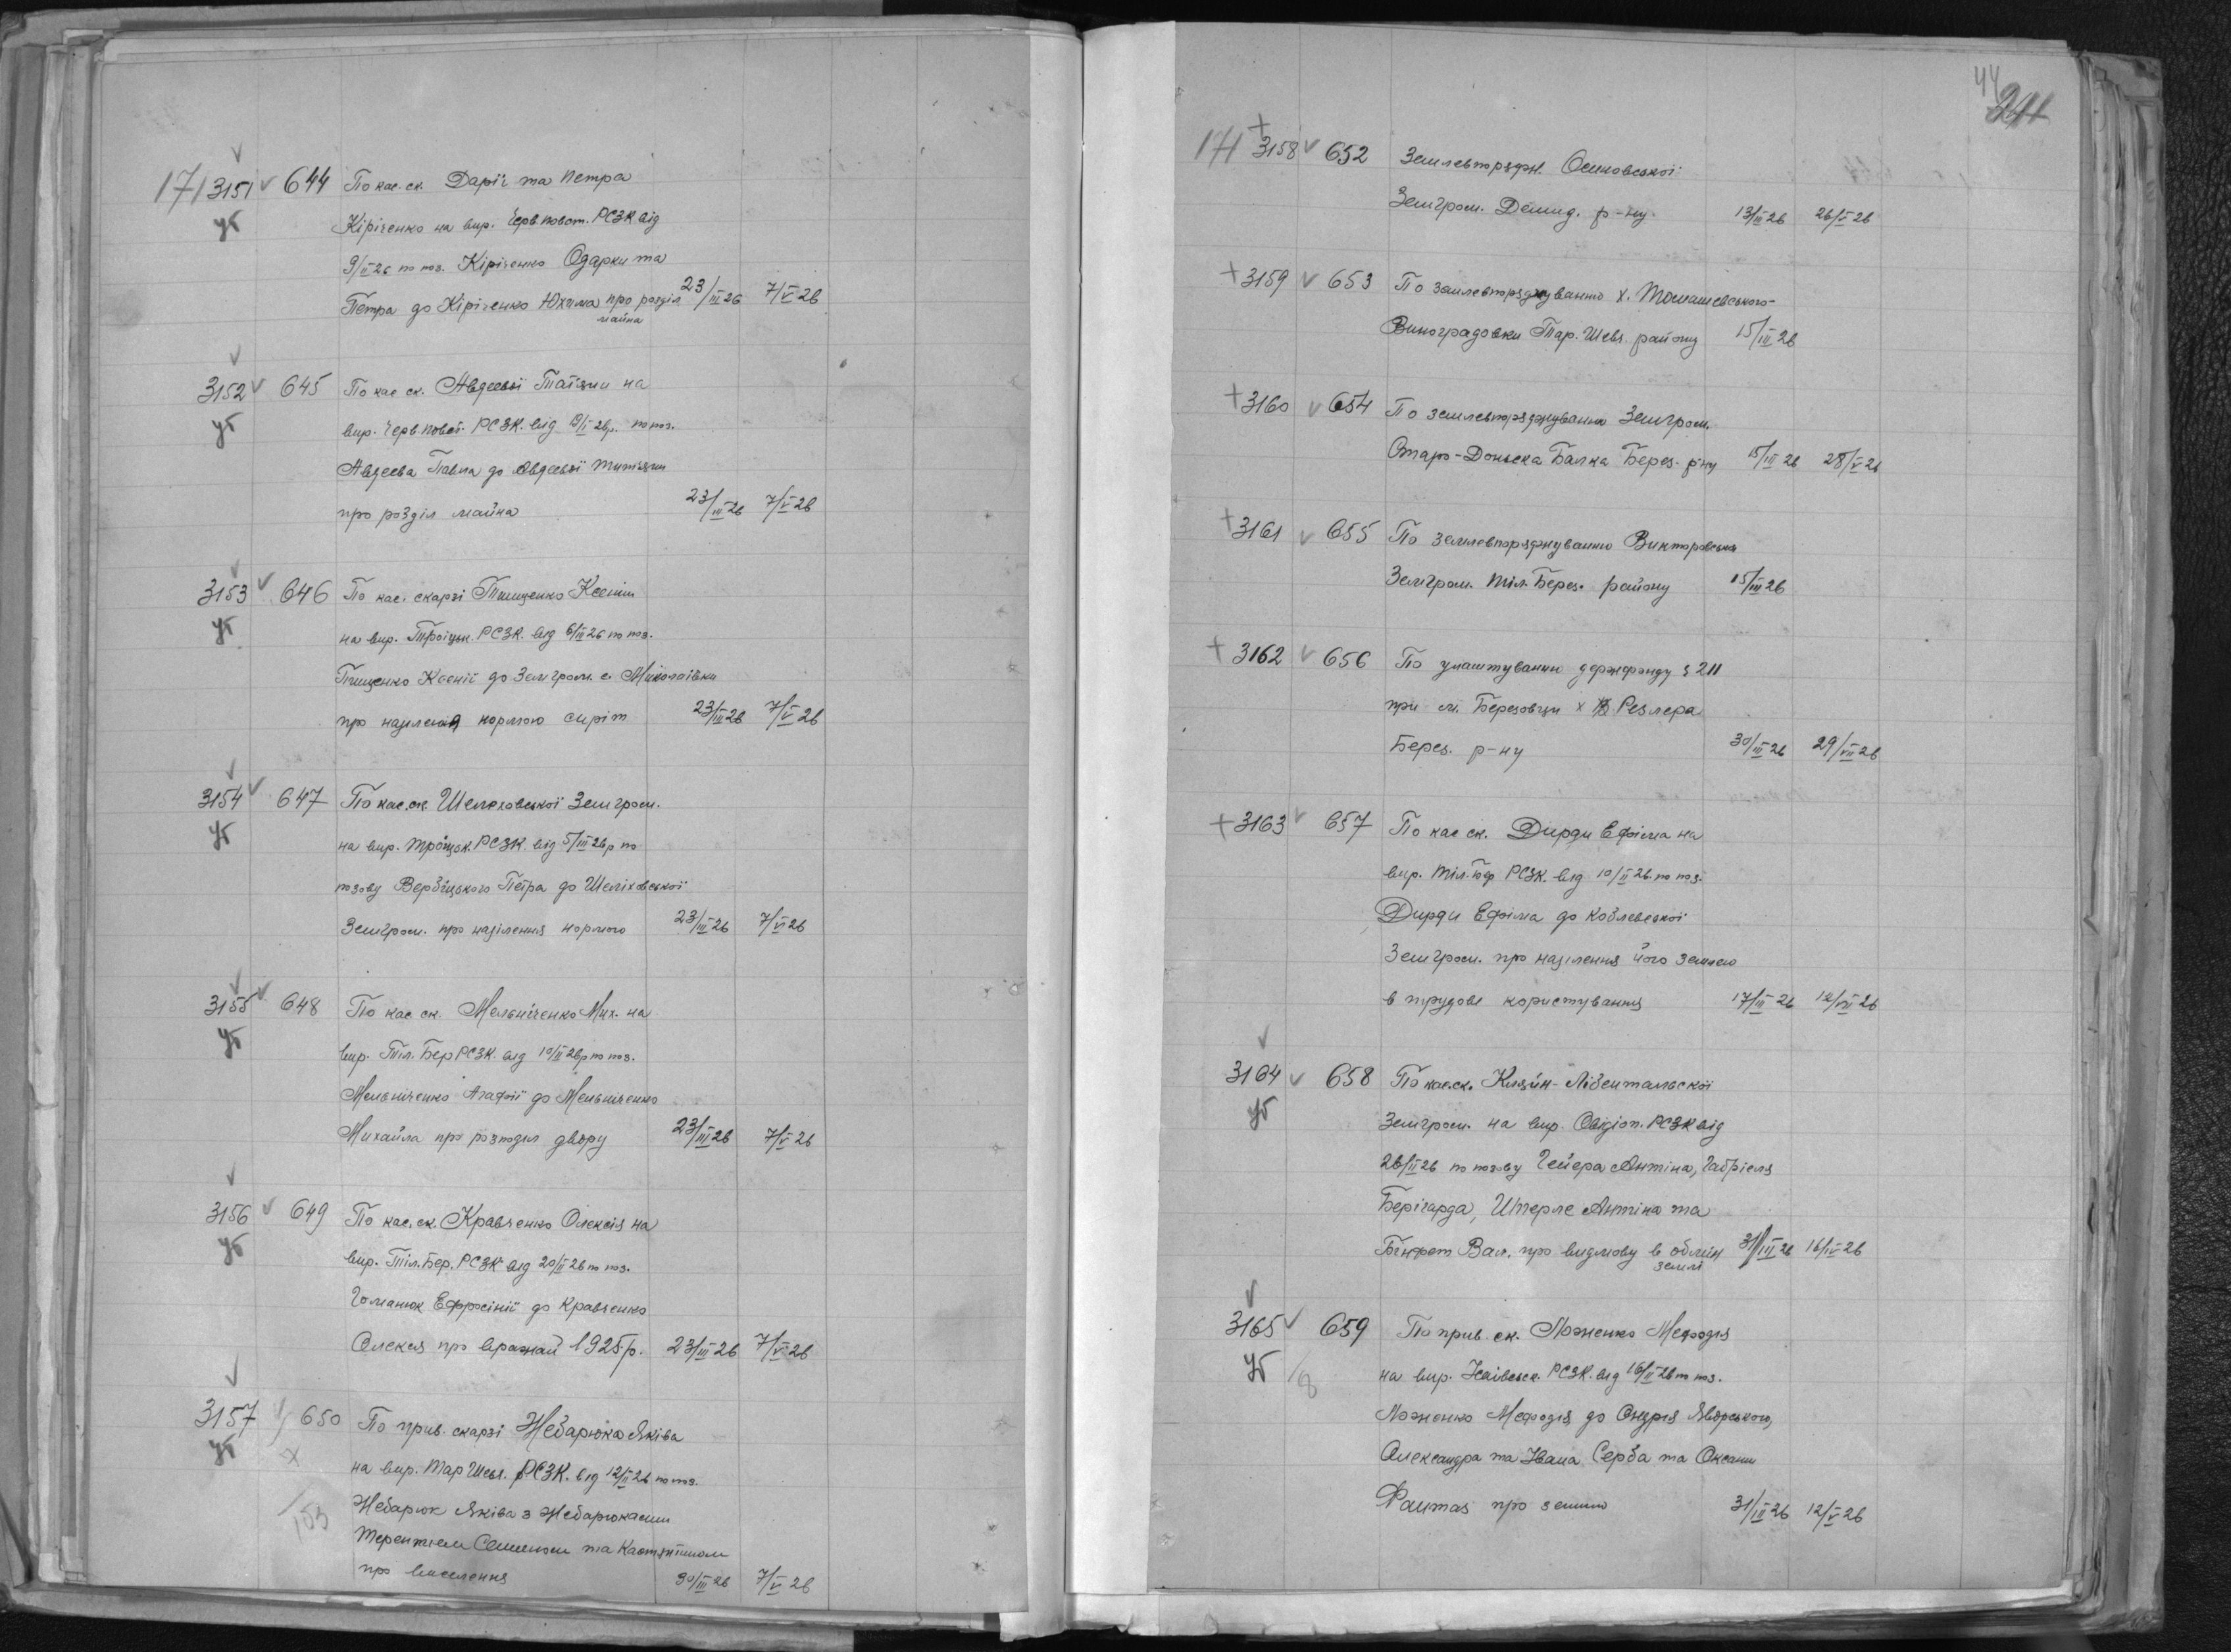 171 3151 644 По кас. ск. Дар'ї та Петра
уб Кіріченко на вир. Черв. Повст. РСЗК від
9/II 26 по поз. Кіріченко Одарки та
Петра до Кіріченко Юхима про розділ 23/III 26 7/V 26
майна
3152 645 По кас ск. Авдеєвої Таїсяни на
уб вир. Черв. Повст. РСЗК. від 9/I 26р. по поз.
Авдеева Павла до Авдеєвої
про розділ майна 23/III 26 7/V 26
3153 646 По кас. скарзі Тищенко Ксенії
уб на вир. Троїцьк. РСЗК. від 6/III 26 по поз.
Тищенко Ксенії до Земгром. с. Миколаївки
про наділення нормою сиріт 23/III 26 7/V 26
3154 647 По кас. ск. Шелеховської Земгром.
уб на вир. Троїцьк. РСЗК. від 5/III 26р по
позову Вербіцького Петра до Шеліховської
Земгром. про наділення нормою 23/III 26 7/VI 26
3155 648 По кас ск. Мельніченко Мих. на
уб вир. Тіл. Бер РСЗК. від 10/II 26р по поз.
Мельніченко Агафії до Мельніченко
Михайла про розподіл двору 23/III 26 7/V 26
3156 649 По кас. ск. Кравченко Олексія на
уб вир. Тіл. Бер. РСЗК від 20/II 26 по поз.
Гоманюк Ефросінії до Кравченко
Олексія про вражай 1925 р. 23/III 26 7/VI 26
3157 650 По прив. скарзі Небарюка Яківа
уб х на вир. Тар Шевч. РСЗК. від 12/II 26 по поз.
103 Небарюк Яківа з Небарюками
Терентієм Семеном та
про виселення 30/III 26 7/V 26
44
211
171 3158 652 Землевпорядж. Осиковської
Земгром. Демид. р-ну. 13/III 26 26/V 26
3159 653 По землевпоряджуванню х. Томашевського-
Виноградовки Тар. Шевч. району 15/III 26
3160 654 По землевпоряджуванню Земгром.
Старо-Донська Балка Берез. р-ну 15/III 26 28/V 26
3161 655 По землевпоряджуванню Викторовська
Земгром. Тіл. Берез. району 15/III 26
3162 656 По улаштуванню держфонду § 211
при м. Березовци х Реслера
Берез. р-ну 30/III 26 29/VII 26
3163 657 По кас ск. Дирди Ефіма на
вир. Тіл. Бер РСЗК. від 10/II 26 по поз.
Дирди Ефіма до Коблевської
Земгром. про наділення його землею
в трудове користування 17/III 26 12/VII 26
3164 658 По кас. ск. Кляйн-Лібентальської
уб Земгром. на вир. Овідіоп. РСЗК від
26/II 26 по позову Гейера Антіна, Габріеля
Берігарда, Штерле Антіна та
Вал. про видмову в обмін 31/III 26 16/IV 26
землі
3165 659 По прив. ск. Моженко Мефодія
уб /8 на вир. РСЗК. від 16/II 26 по поз.
Моженко Мефодія до Ондрія Яворського,
Олександра та Івана Серба та Оксани
про землю 31/III 26 12/V 26